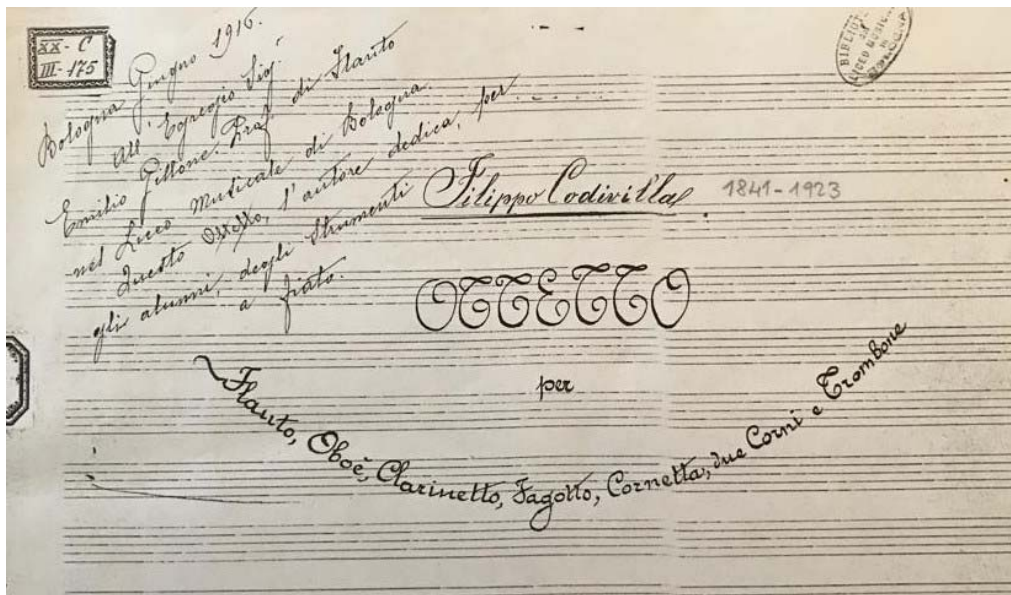 XX - C
III - 175
Bologna Giugno 1916.
All' Egregio Sig.
Emilio Gillone. Prof di Flauto
nel Liceo Musicale di Bologna.
Questo Ottetto, l'autore dedica, per
gli alunni, degli Strumenti
a fiato.
BIBLIOTECA
LICEO MUSICALE
Filippo Codivilla
1841-1923
OTTETTO
per
Flauto, Oboè, Clarinetto, Fagotto, Cornetta, due Corni e Trombone